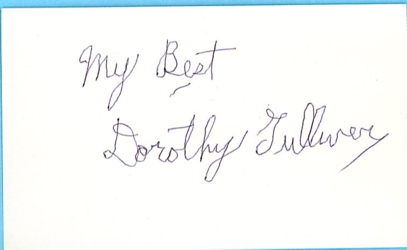 My Best
Dorothy Gulliver